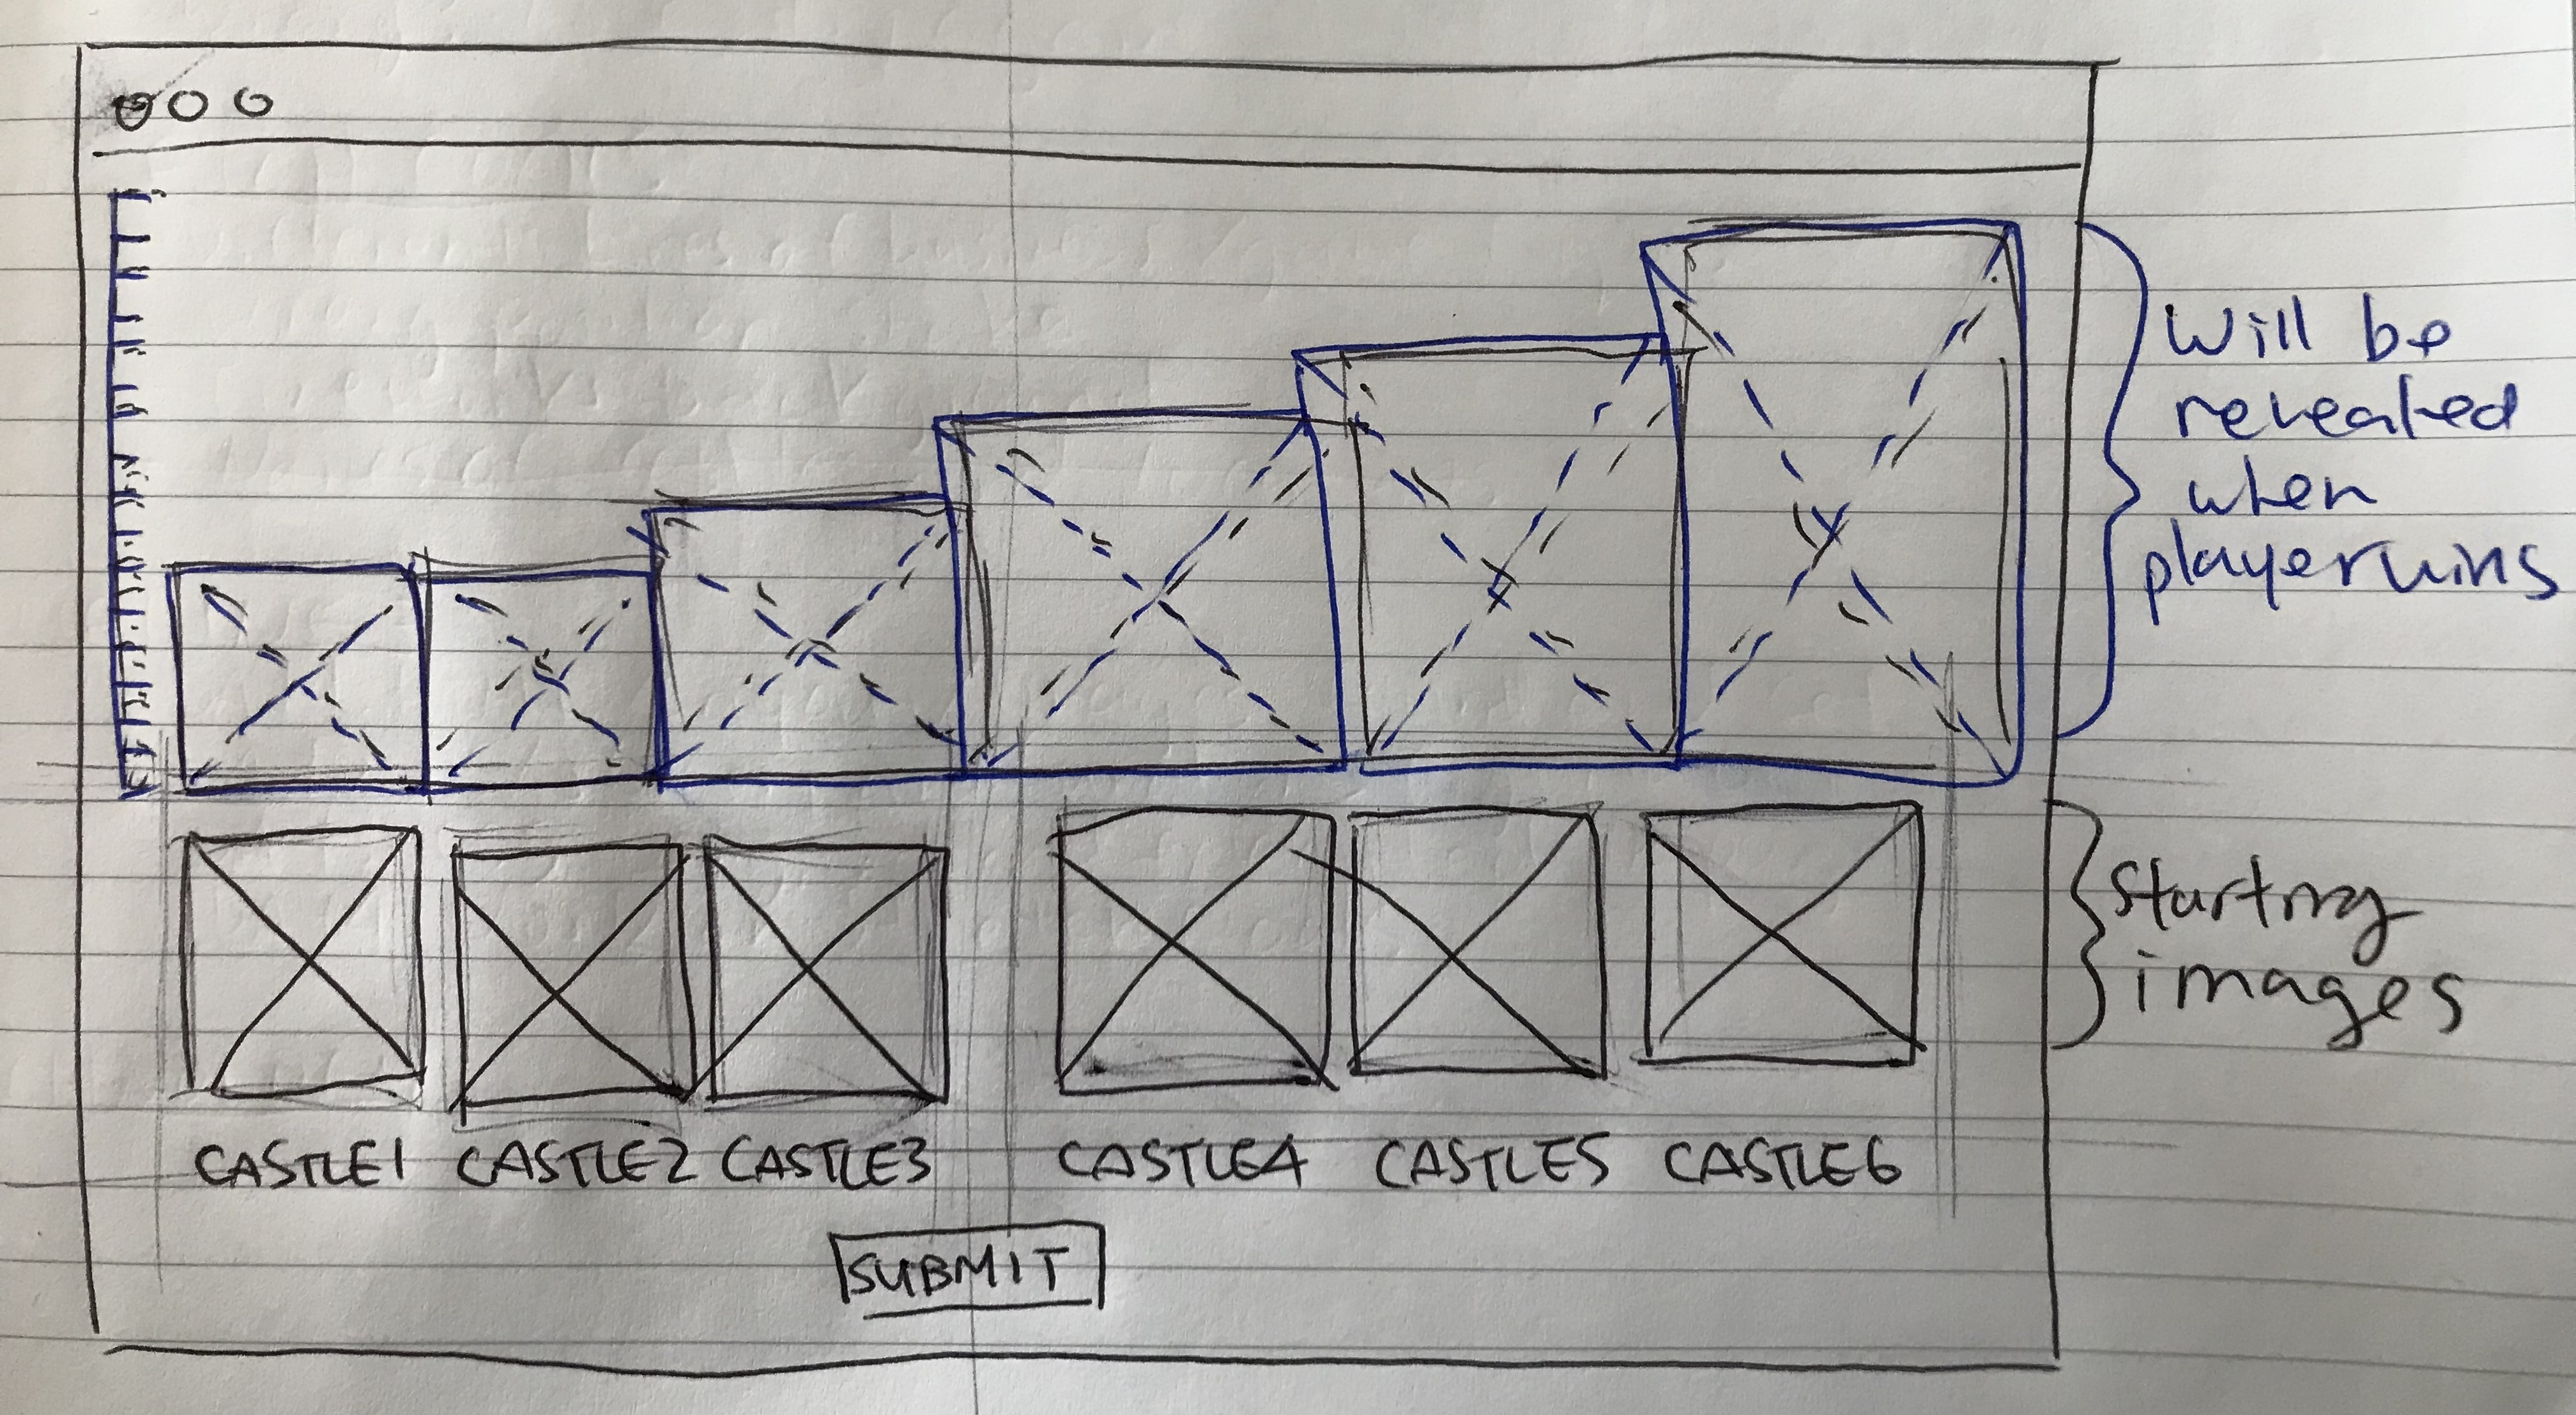 Will be
revealed
when
player wins
Starting
images
CASTLE1 CASTLE2 CASTLE3 CASTLE4 CASTLE5 CASTLE6
SUBMIT